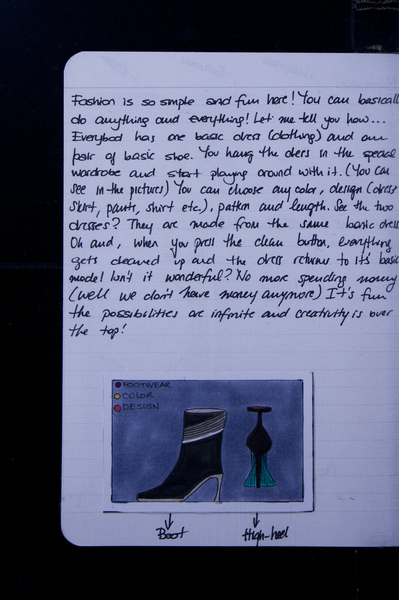 Fashion is so simple and fun here! You can basicall
do anything and everything! Let me tell you how...
Everybod has one basic dress (clothing) and one
pair of basic shoe. You hang the dress in the special
wardrobe and start playing around with it. (You can
see in the pictures) You can choose any color, design (dress
skirt, pants, shirt etc.), pattern and length. See the two
dresses? They are made from the same basic dress
Oh and, when you press the clean button, everything
gets cleaned up and the dress returns to it's basic
model. Isn't it wonderful? No more spending money
(well we don't have money anymore) It's fun
the possibilities are infinite and creativity is over
the top!
FOOTWEAR
COLOR
DESIGN
Boot High-heel